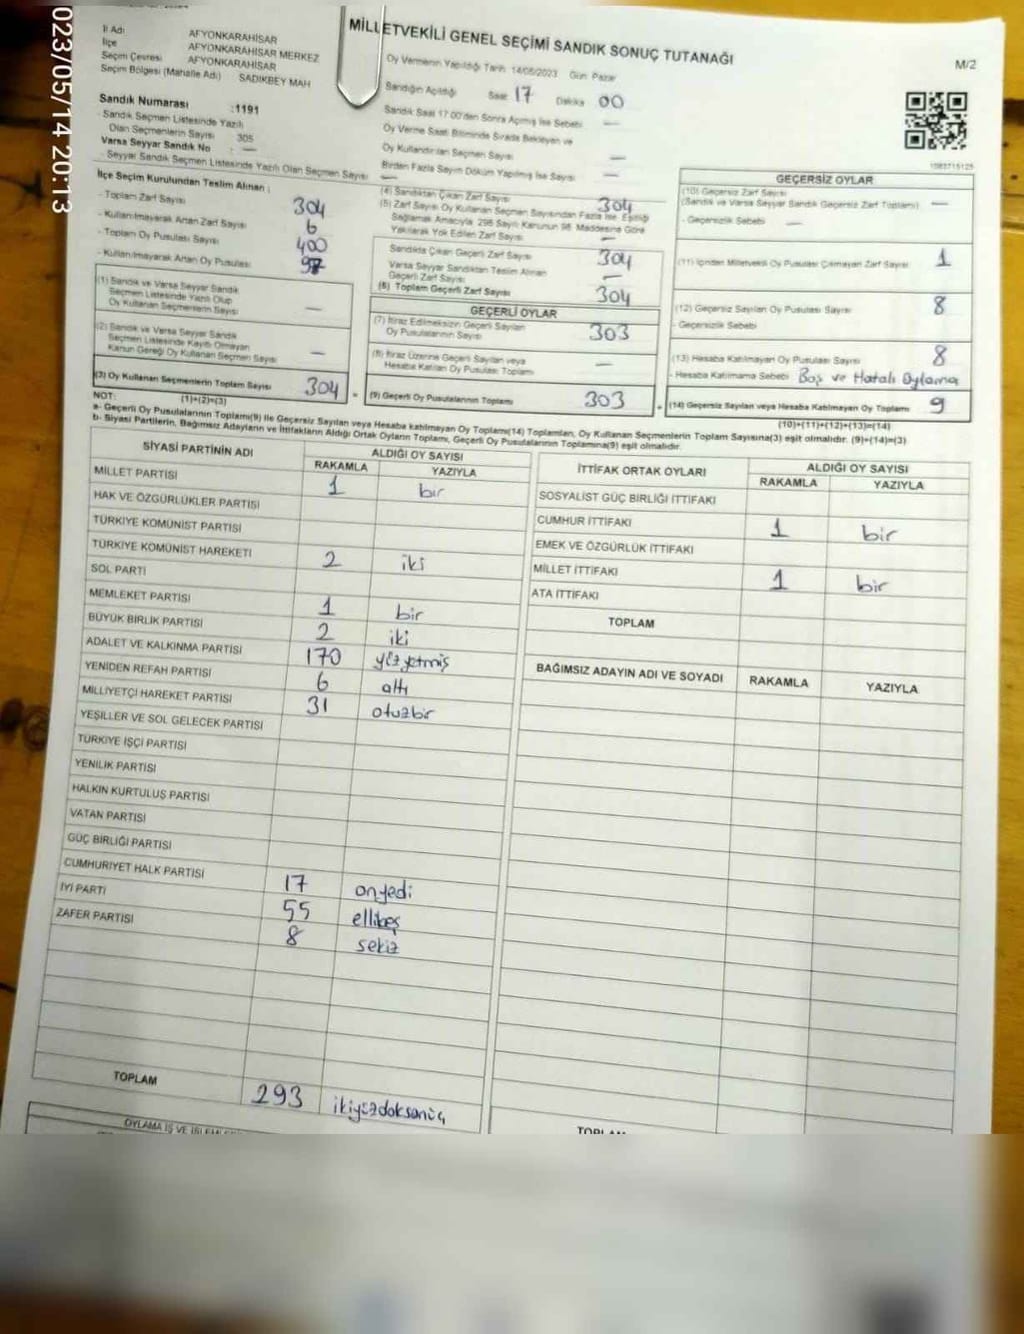 023/05/14 20:13
MİLLETVEKİLİ GENEL SEÇİMİ SANDIK SONUÇ TUTANAĞI
M/2
İl Adı AFYONKARAHİSAR
İlçe AFYONKARAHİSAR MERKEZ
Seçim Çevresi AFYONKARAHİSAR
Seçim Bölgesi (Mahalle Adı) SADIKBEY MAH
Oy Vermenin Yapıldığı Tarih 14/05/2023 Gün Pazar
Sandığın Açıldığı Saat 17 Dakika 00
Sandık Saat 17.00'den Sonra Açılmış İse Sebebi —
Oy Verme Saati Bitiminde Sırada Bekleyen ve
Oy Kullandırılan Seçmen Sayısı —
Birden Fazla Sayım Döküm Yapılmış İse Sayısı —
Sandık Numarası :1191
- Sandık Seçmen Listesinde Yazılı
Olan Seçmenlerin Sayısı 305
Varsa Seyyar Sandık No : —
- Seyyar Sandık Seçmen Listesinde Yazılı Olan Seçmen Sayısı —
İlçe Seçim Kurulundan Teslim Alınan :
- Toplam Zarf Sayısı 304
- Kullanılmayarak Artan Zarf Sayısı 6
- Toplam Oy Pusulası Sayısı 400
- Kullanılmayarak Artan Oy Pusulası 97
(1) Sandık ve Varsa Seyyar Sandık
Seçmen Listesinde Yazılı Olup
Oy Kullanan Seçmenlerin Sayısı —
(2) Sandık ve Varsa Seyyar Sandık
Seçmen Listesinde Kayıtlı Olmayan
Kanun Gereği Oy Kullanan Seçmen Sayısı —
(3) Oy Kullanan Seçmenlerin Toplam Sayısı 304
(1)+(2)=(3)
(4) Sandıktan Çıkan Zarf Sayısı 304
(5) Zarf Sayısı Oy Kullanan Seçmen Sayısından Fazla İse, Eşitliği
Sağlamak Amacıyla 298 Sayılı Kanunun 98. Maddesine Göre
Yakılarak Yok Edilen Zarf Sayısı —
Sandıkta Çıkan Geçerli Zarf Sayısı 304
Varsa Seyyar Sandıktan Teslim Alınan
Geçerli Zarf Sayısı —
(6) Toplam Geçerli Zarf Sayısı 304
GEÇERLİ OYLAR
(7) İtiraz Edilmeksizin Geçerli Sayılan
Oy Pusulalarının Sayısı 303
(8) İtiraz Üzerine Geçerli Sayılan veya
Hesaba Katılan Oy Pusulaları Toplamı —
(9) Geçerli Oy Pusulalarının Toplamı 303
GEÇERSİZ OYLAR
(10) Geçersiz Zarf Sayısı
(Sandık ve Varsa Seyyar Sandık Geçersiz Zarf Toplamı) —
- Geçersizlik Sebebi —
(11) İçinden Milletvekili Oy Pusulası Çıkmayan Zarf Sayısı 1
(12) Geçersiz Sayılan Oy Pusulası Sayısı 8
- Geçersizlik Sebebi
(13) Hesaba Katılmayan Oy Pusulası Sayısı 8
- Hesaba Katılmama Sebebi Boş ve Hatalı Oylama
(14) Geçersiz Sayılan veya Hesaba Katılmayan Oy Toplamı 9
(10)+(11)+(12)+(13)=(14)
NOT:
a- Geçerli Oy Pusulalarının Toplamı(9) ile Geçersiz Sayılan veya Hesaba Katılmayan Oy Toplamı(14) Toplamları, Oy Kullanan Seçmenlerin Toplam Sayısına(3) eşit olmalıdır. (9)+(14)=(3)
b- Siyasi Partilerin, Bağımsız Adayların ve İttifakların Aldığı Ortak Oyların Toplamı, Geçerli Oy Pusulalarının Toplamına(9) eşit olmalıdır.
SİYASİ PARTİNİN ADI ALDIĞI OY SAYISI
RAKAMLA YAZIYLA
MİLLET PARTİSİ 1 bir
HAK VE ÖZGÜRLÜKLER PARTİSİ
TÜRKİYE KOMÜNİST PARTİSİ
TÜRKİYE KOMÜNİST HAREKETİ 2 iki
SOL PARTİ
MEMLEKET PARTİSİ 1 bir
BÜYÜK BİRLİK PARTİSİ 2 iki
ADALET VE KALKINMA PARTİSİ 170 yüzyetmiş
YENİDEN REFAH PARTİSİ 6 altı
MİLLİYETÇİ HAREKET PARTİSİ 31 otuzbir
YEŞİLLER VE SOL GELECEK PARTİSİ
TÜRKİYE İŞÇİ PARTİSİ
YENİLİK PARTİSİ
HALKIN KURTULUŞ PARTİSİ
VATAN PARTİSİ
GÜÇ BİRLİĞİ PARTİSİ
CUMHURİYET HALK PARTİSİ 17 onyedi
İYİ PARTİ 55 ellibeş
ZAFER PARTİSİ 8 sekiz
TOPLAM 293 ikiyüzdoksanüç
İTTİFAK ORTAK OYLARI ALDIĞI OY SAYISI
RAKAMLA YAZIYLA
SOSYALİST GÜÇ BİRLİĞİ İTTİFAKI
CUMHUR İTTİFAKI 1 bir
EMEK VE ÖZGÜRLÜK İTTİFAKI
MİLLET İTTİFAKI 1 bir
ATA İTTİFAKI
TOPLAM
BAĞIMSIZ ADAYIN ADI VE SOYADI RAKAMLA YAZIYLA